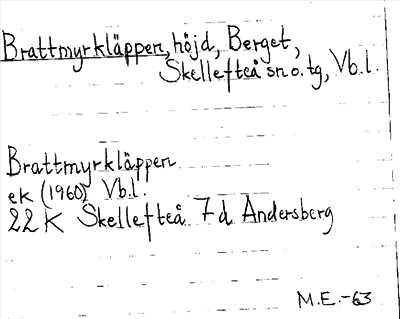 Brattmyrkläppen, höjd, Berget,
Skellefteå sn o. tg, Vb.l.
Brattmyrkläppen
ek (1960) Vb.l.
22 K Skellefteå 7d Andersberg
M.E.-63